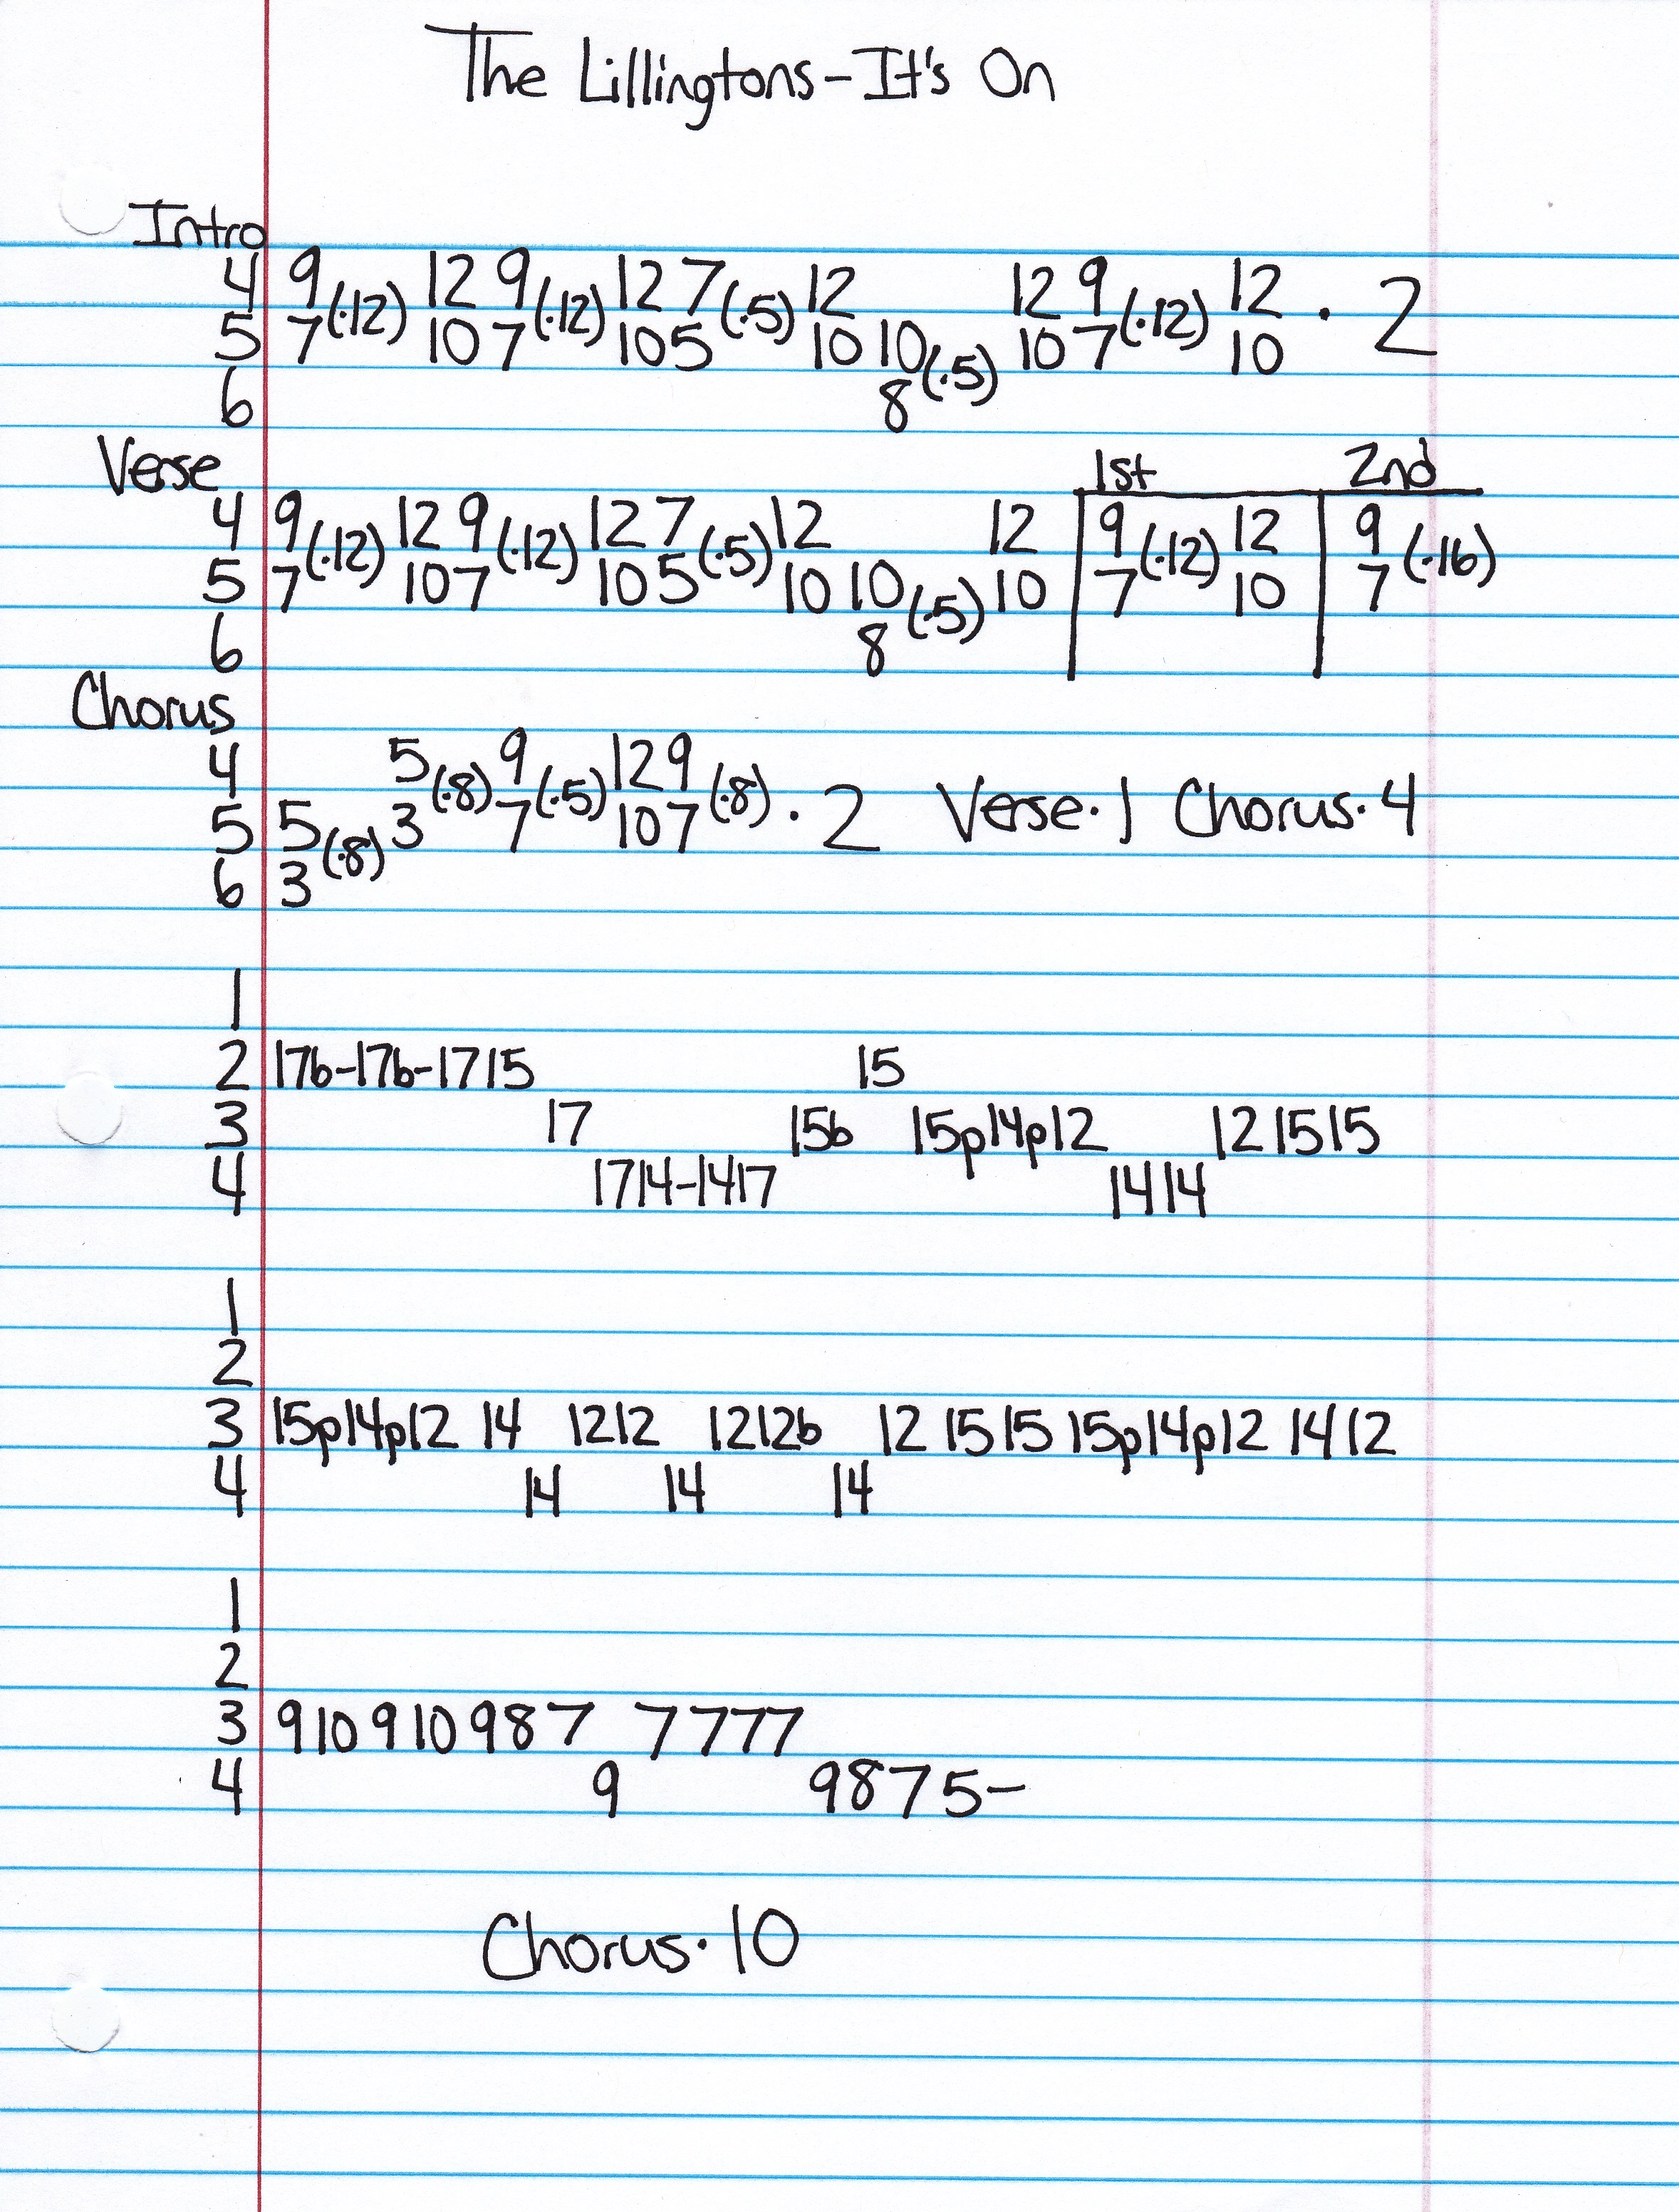 The Lillingtons-It's On
Intro
4 9 (·12) 12 9 (·12) 12 7 (·5) 12 12 9 (·12) 12 · 2
5 7 10 7 10 5 10 10 (·5) 10 7 10
6 8
Verse 1st 2nd
4 9 (·12) 12 9 (·12) 12 7 (·5) 12 12 9 (·12) 12 9 (·16)
5 7 10 7 10 5 10 10 (·5) 10 7 10 7
6 8
Chorus
4 5 (·8) 9 (·5) 12 9 (·8)
5 5 (·8) 3 7 10 7 · 2 Verse·1 Chorus·4
6 3
1
2 17b-17b-17 15 15
3 17 15b 15p14p12 12 15 15
4 17 14-14 17 14 14
1
2
3 15p14p12 14 12 12 12 12b 12 15 15 15p14p12 14 12
4 14 14 14
1
2
3 9 10 9 10 9 8 7 7 7 7 7
4 9 9 8 7 5-
Chorus·10